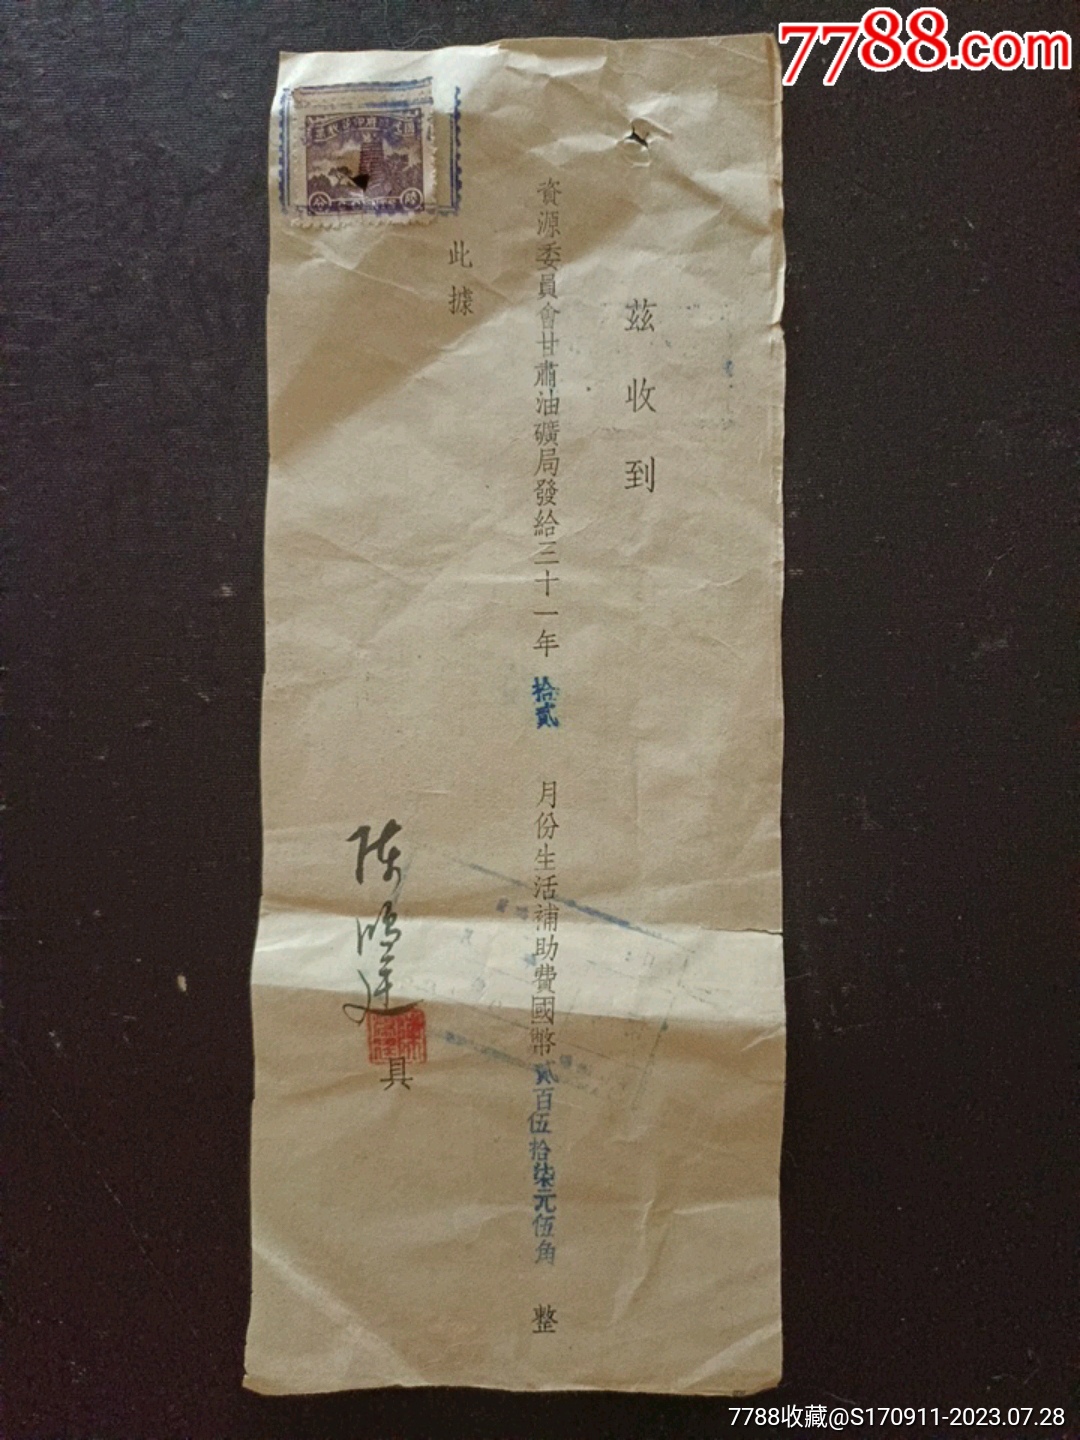 7788.com
茲收到
資源委員會甘肅油礦局發給三十一年拾貳月份生活補助費國幣貳百伍拾柒元伍角整
此據
陈鴻逵
具
分
7788收藏@S170911-2023.07.28